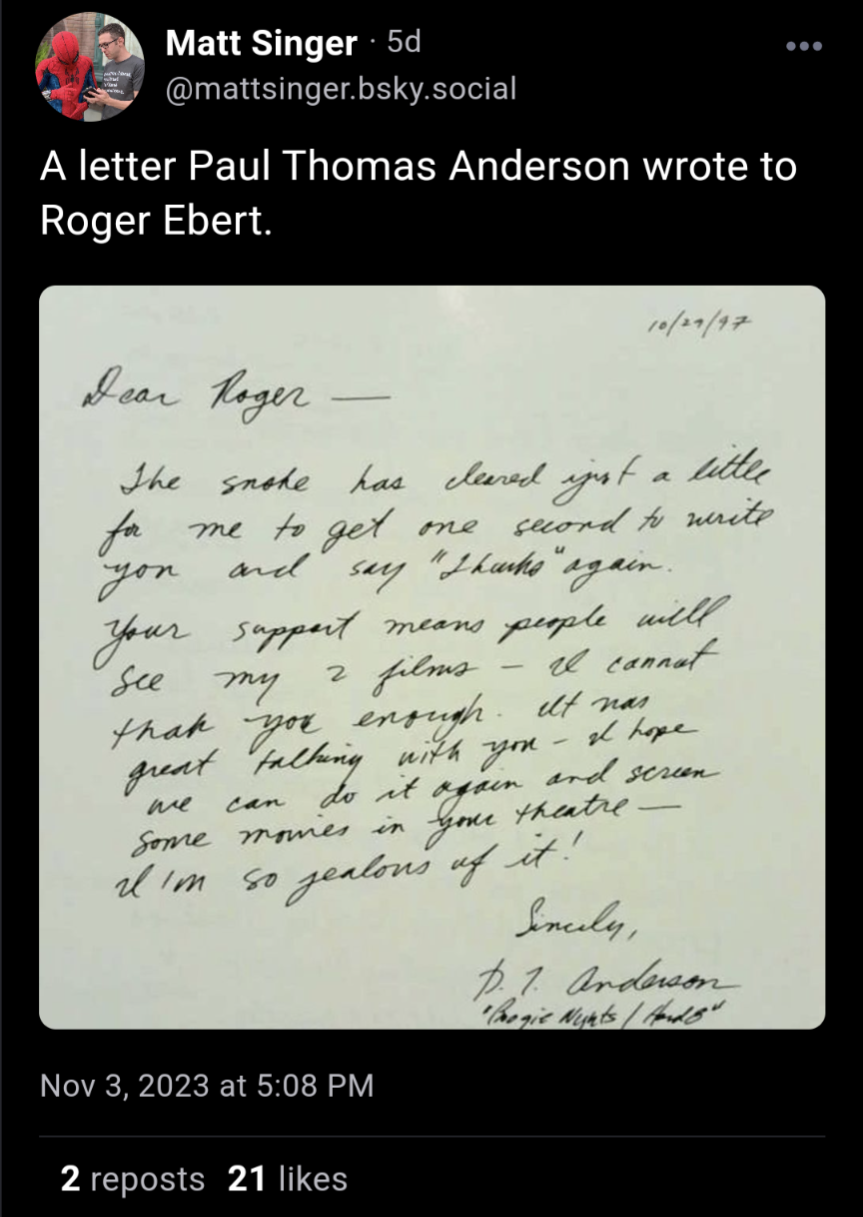 Matt Singer · 5d
@mattsinger.bsky.social
A letter Paul Thomas Anderson wrote to
Roger Ebert.
10/29/97
Dear Roger —
The smoke has cleared just a little
for me to get one second to write
you and say "Thanks" again.
Your support means people will
see my 2 films — I cannot
thak you enough. It was
great talking with you — I hope
we can do it again and screen
some movies in your theatre —
I'm so jealous of it!
Sincely,
P.T. Anderson
"Boogie Nights / Hard 8"
Nov 3, 2023 at 5:08 PM
2 reposts 21 likes